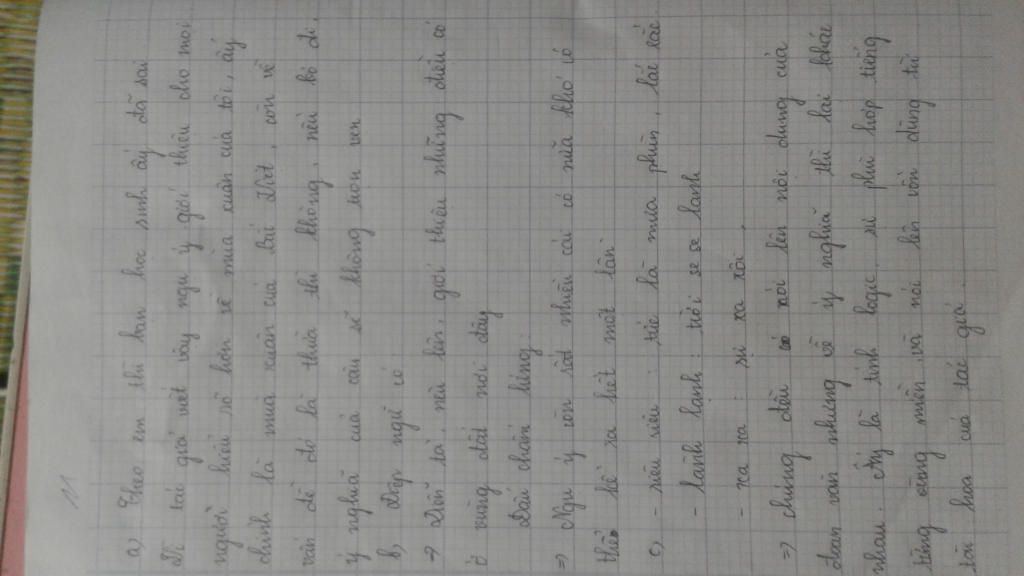 11
a) Theo em thì bạn học sinh ấy đã sai
Vì tác giả viết vậy ngụ ý giới thiệu cho mọi
người hiểu rõ hơn về mùa xuân của tôi, ấy
chính là mùa xuân của bắc Việt, còn về
vấn đề đó là thừa thì không, nếu bỏ đi,
ý nghĩa của câu sẽ không trọn vẹn
b, Điệp ngữ có
→ Diễn tả, nêu lên, giới thiệu những điều có
ở vùng đất nơi đây
Dấu chấm lửng
=> Ngụ ý còn rất nhiều cái có nữa khó có
thể kể ra hết một lần
c, - riêu riêu : tức là mưa phùn, lất lất
- lành lạnh : trời se se lạnh
- xa xa : sự xa xôi.
=> chúng đều nói lên nội dung của
đoạn văn nhưng về ý nghĩa thì lại khác
nhau. Ấy là tính logic. sự phù hợp tiếng
từng vùng miền và nói lên vốn dùng từ
tài hoa của tác giả.